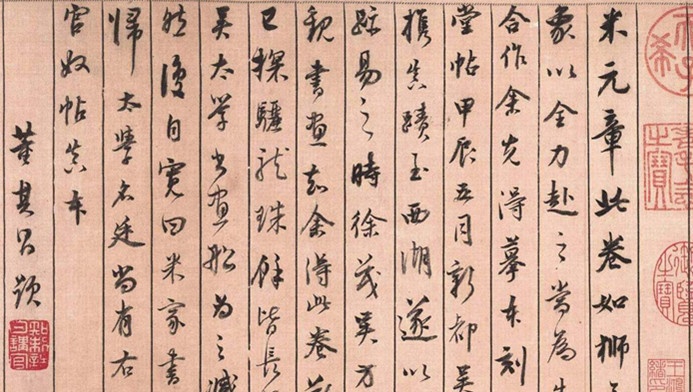 米元章此卷如獅
象以全力赴之當為
合作余先得摹本刻
堂帖甲辰五月新都吳
携真蹟至西湖遂以
跡易之時徐茂吳方
觀書画知余得此卷
已探驪龍珠餘皆長
吳太學書画船為之減
然復自寬曰米家書
歸太學名廷尚有右
官奴帖真本
董其昌題
知制誥日講官